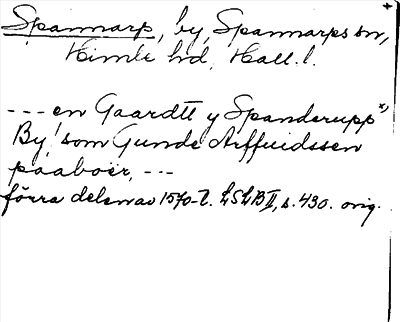 Spannarp, by, Spannarps sn,
Himle hd, Hall. l.
--- en Gaardtt y Spanderupp x)
By, som Gunde Arffuidssen
paaboer, ---
förra delen av 1570-t. LSLB II, s. 430. orig.